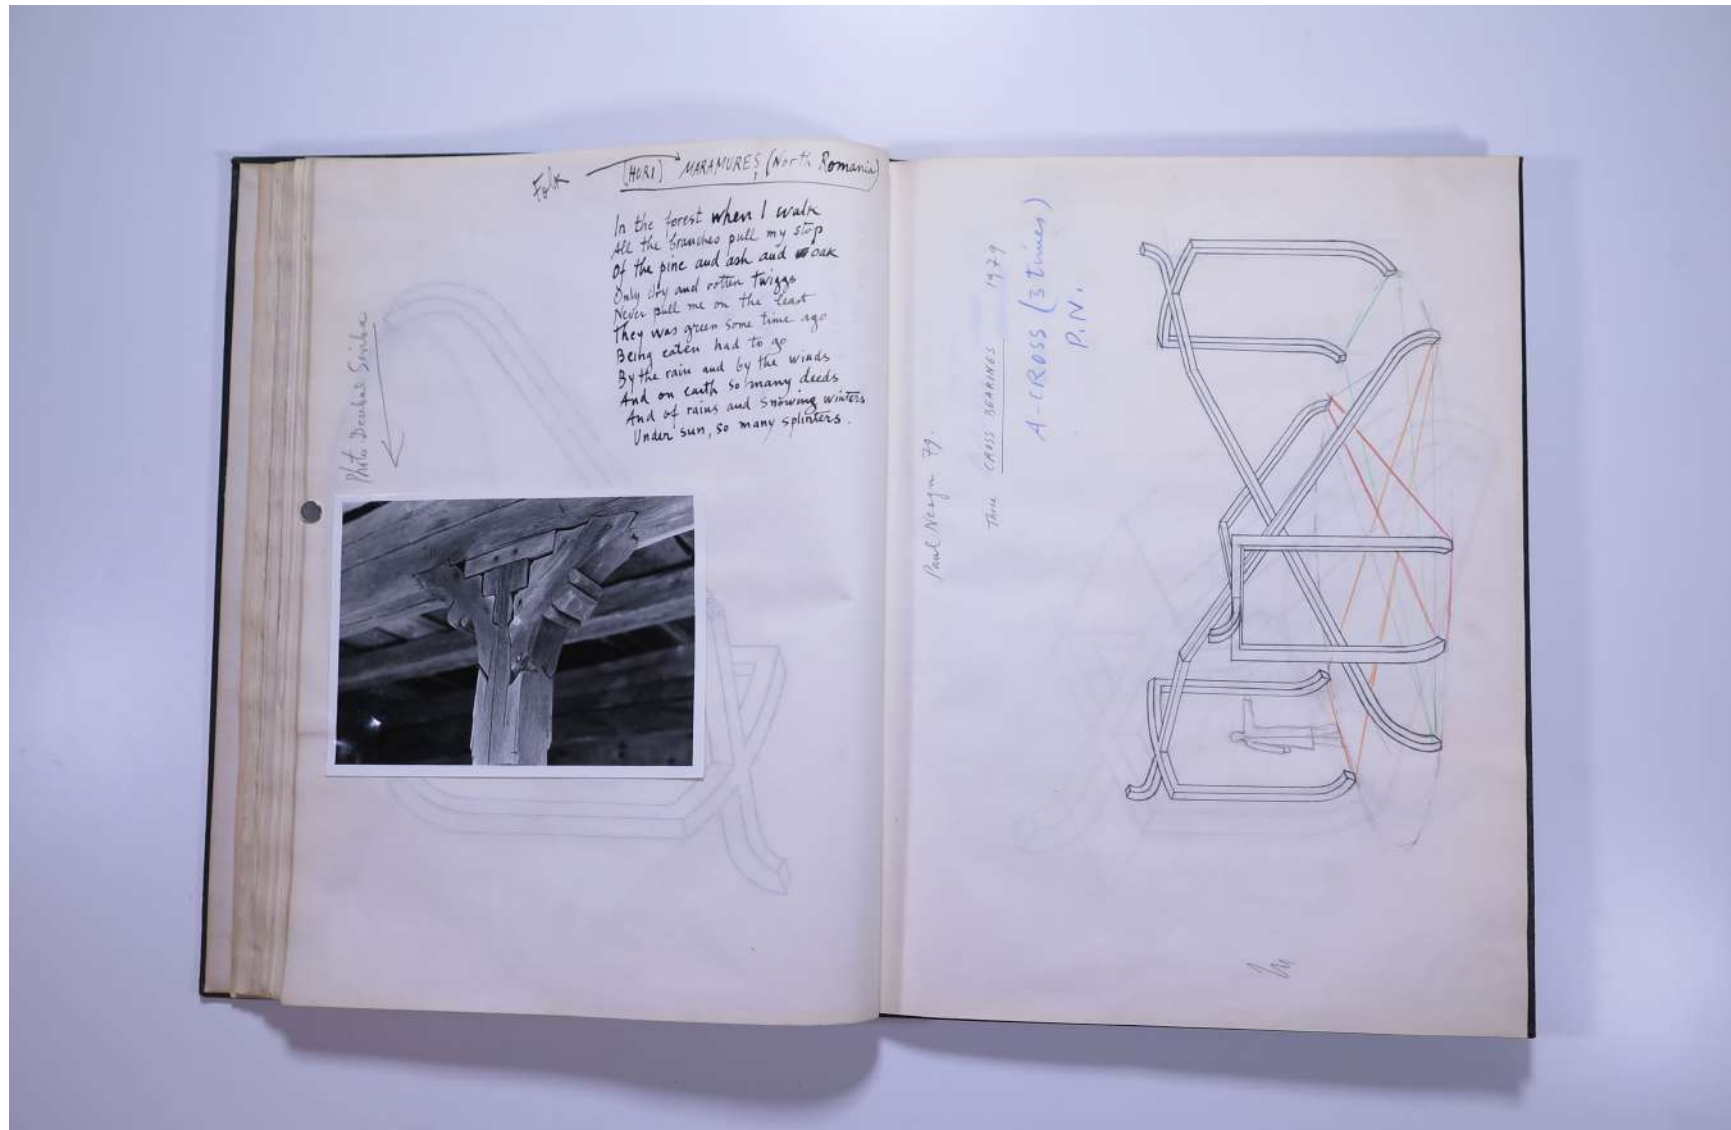 Folk (HORI) MARAMUREȘ (North Romania)
In the forest when I walk
All the branches pull my stop
Of the pine and ash and oak
Only dry and rotten twiggs
Never pull me on the least
They was green some time ago
Being eaten had to go
By the rain and by the winds
And on earth so many deeds
And of rains and snowing winters
Under sun, so many splinters.
Photo
Paul Neagu 79.
Three CROSS BEARINGS 1979
A-CROSS (3 times)
P.N.